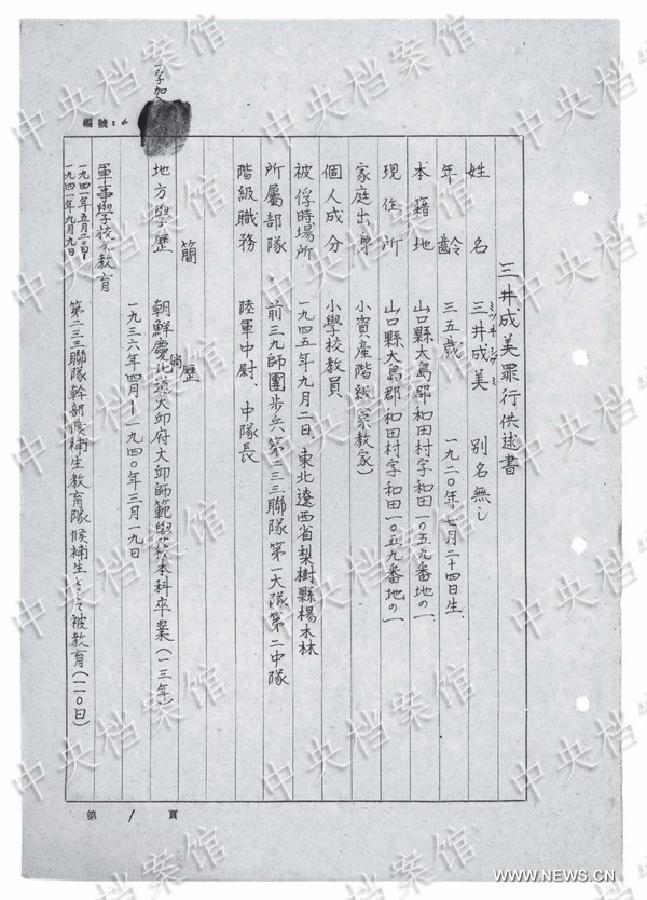 三井成美罪行供述書
姓名 三井成美 別名無し
年齢 三五歳 一九二〇年七月二十四日生
本籍地 山口縣大島郡和田村字和田一〇五九番地の一
現住所 山口縣大島郡和田村字和田一〇五九番地の一
家庭出身 小資産階級(宗教家)
個人成分 小學校教員
被俘時場所 一九四五年九月二日、東北遼西省梨樹縣楊木林
所屬部隊 前三九師團步兵第二三三聯隊第一大隊第二中隊
階級職務 陸軍中尉、中隊長
簡歷
地方學歷 朝鮮慶北道大邱府大邱師範學校本科卒業(一三年)
一九三六年四月―一九四〇年三月一九日
軍事學校ノ教育
一九四一年五月二〇日
一九四一年九月九日
第二三三聯隊幹部候補生教育隊候補生として被教育(一一〇日)
一字加
編號:6
第 1 頁
中央档案馆
WWW.NEWS.CN